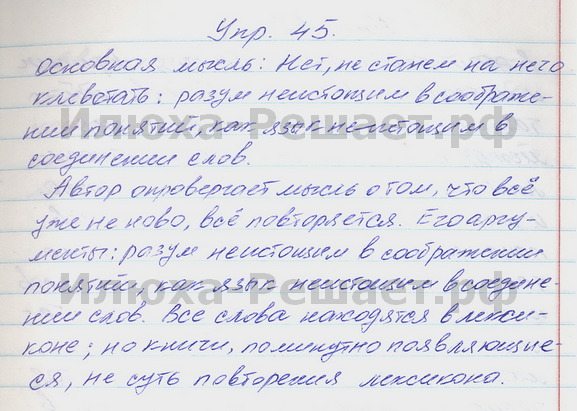 Упр. 45.
Основная мысль: Нет, не станем на него
клеветать: разум неистощим в соображе-
нии понятий, как язык неистощим в
соединении слов.
Автор опровергает мысль о том, что всё
уже не ново, всё повторяется. Его аргу-
менты: разум неистощим в соображении
понятий, как язык неистощим в соедине-
нии слов. Все слова находятся в лекси-
коне; но книги, поминутно появляющие-
ся, не суть повторения лексикона.
Илюха-Решает.рф
Илюха-Решает.рф